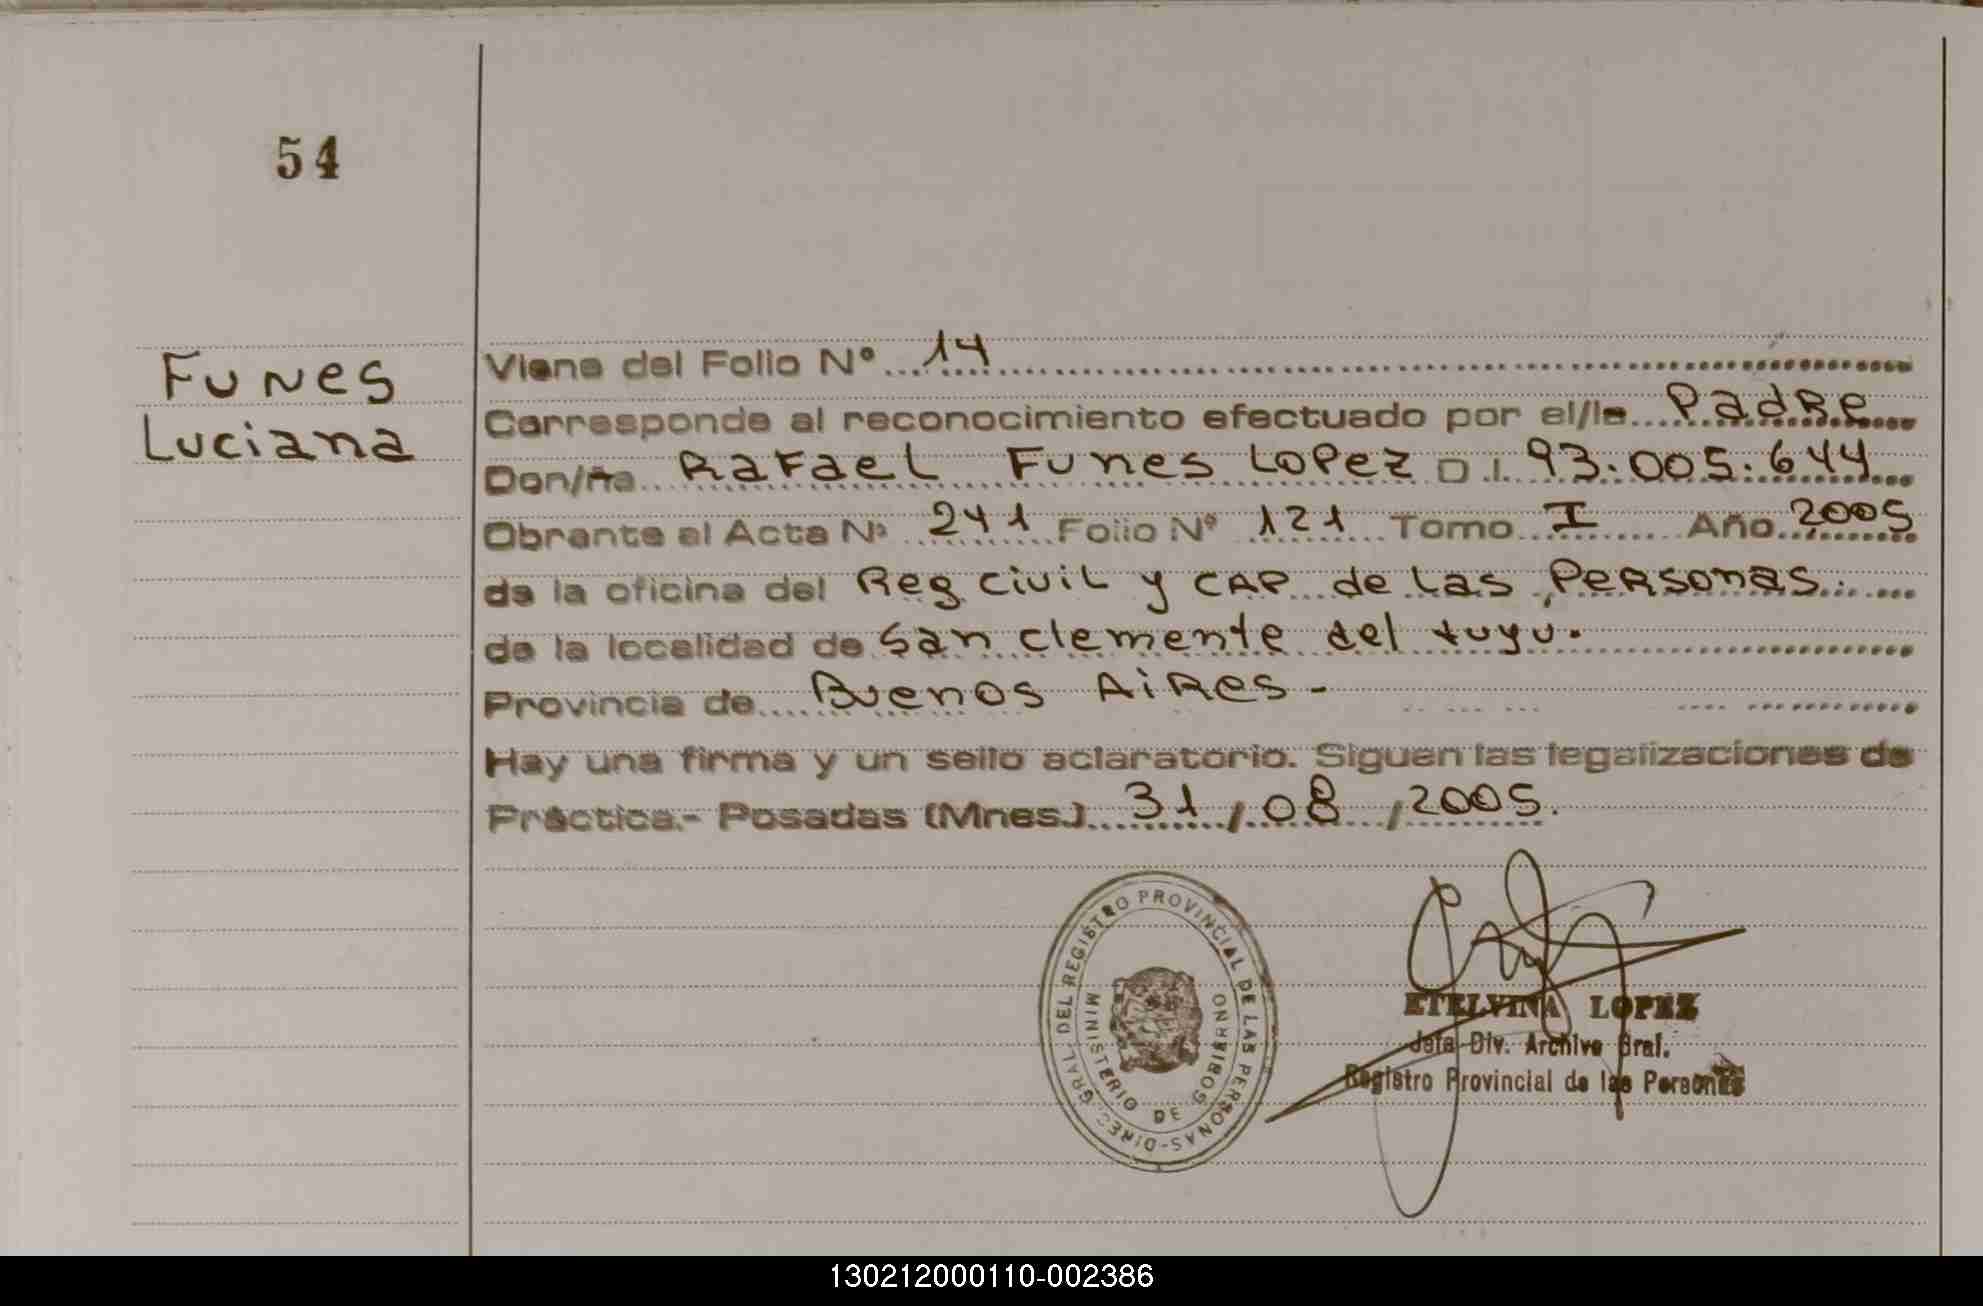 54
Funes
Luciana
Viene del Folio Nº 14
Corresponde al reconocimiento efectuado por el/la Padre
Don/ña Rafael Funes Lopez D.I. 93.005.644
Obrante al Acta Nº 241 Folio Nº 121 Tomo I Año 2005
de la oficina del Reg civil y CAP de las Personas.
de la localidad de San clemente del tuyu.
Provincia de Buenos Aires -
Hay una firma y un sello aclaratorio. Siguen las legalizaciones de
Práctica.- Posadas (Mnes.) 31/08/2005.
DIREC. GRAL. DEL REGISTRO PROVINCIAL DE LAS PERSONAS-
MINISTERIO DE GOBIERNO
ETELVINA LOPEZ
Jefa Div. Archivo Gral.
Registro Provincial de las Personas
130212000110-002386